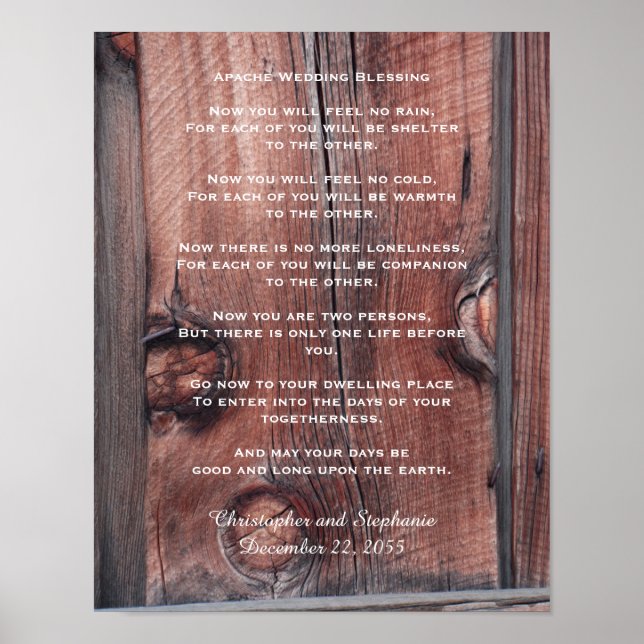 Apache Wedding Blessing
Now you will feel no rain,
For each of you will be shelter
to the other.
Now you will feel no cold,
For each of you will be warmth
to the other.
Now there is no more loneliness,
For each of you will be companion
to the other.
Now you are two persons,
But there is only one life before
you.
Go now to your dwelling place
To enter into the days of your
togetherness.
And may your days be
good and long upon the earth.
Christopher and Stephanie
December 22, 2055